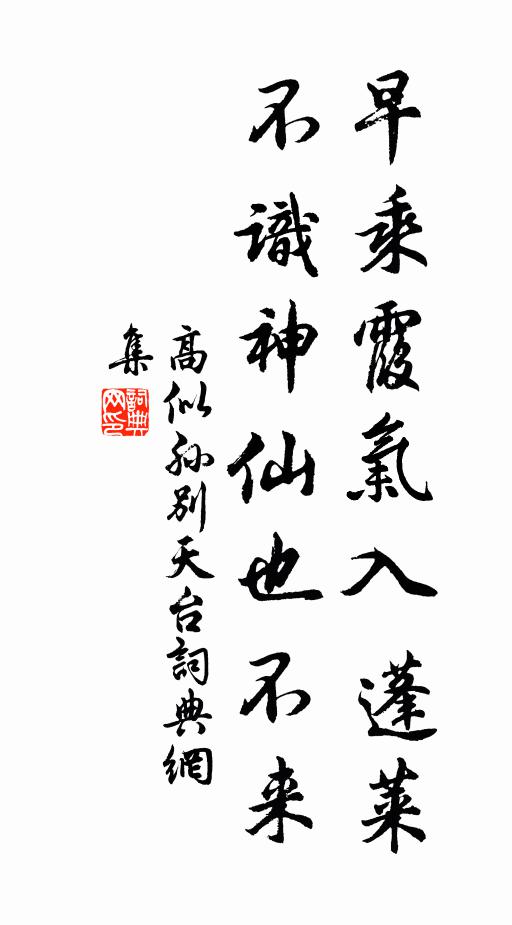 早乘霞氣入蓬萊
不識神仙也不来
高似孙別天台詞典網
集
詞典
网印